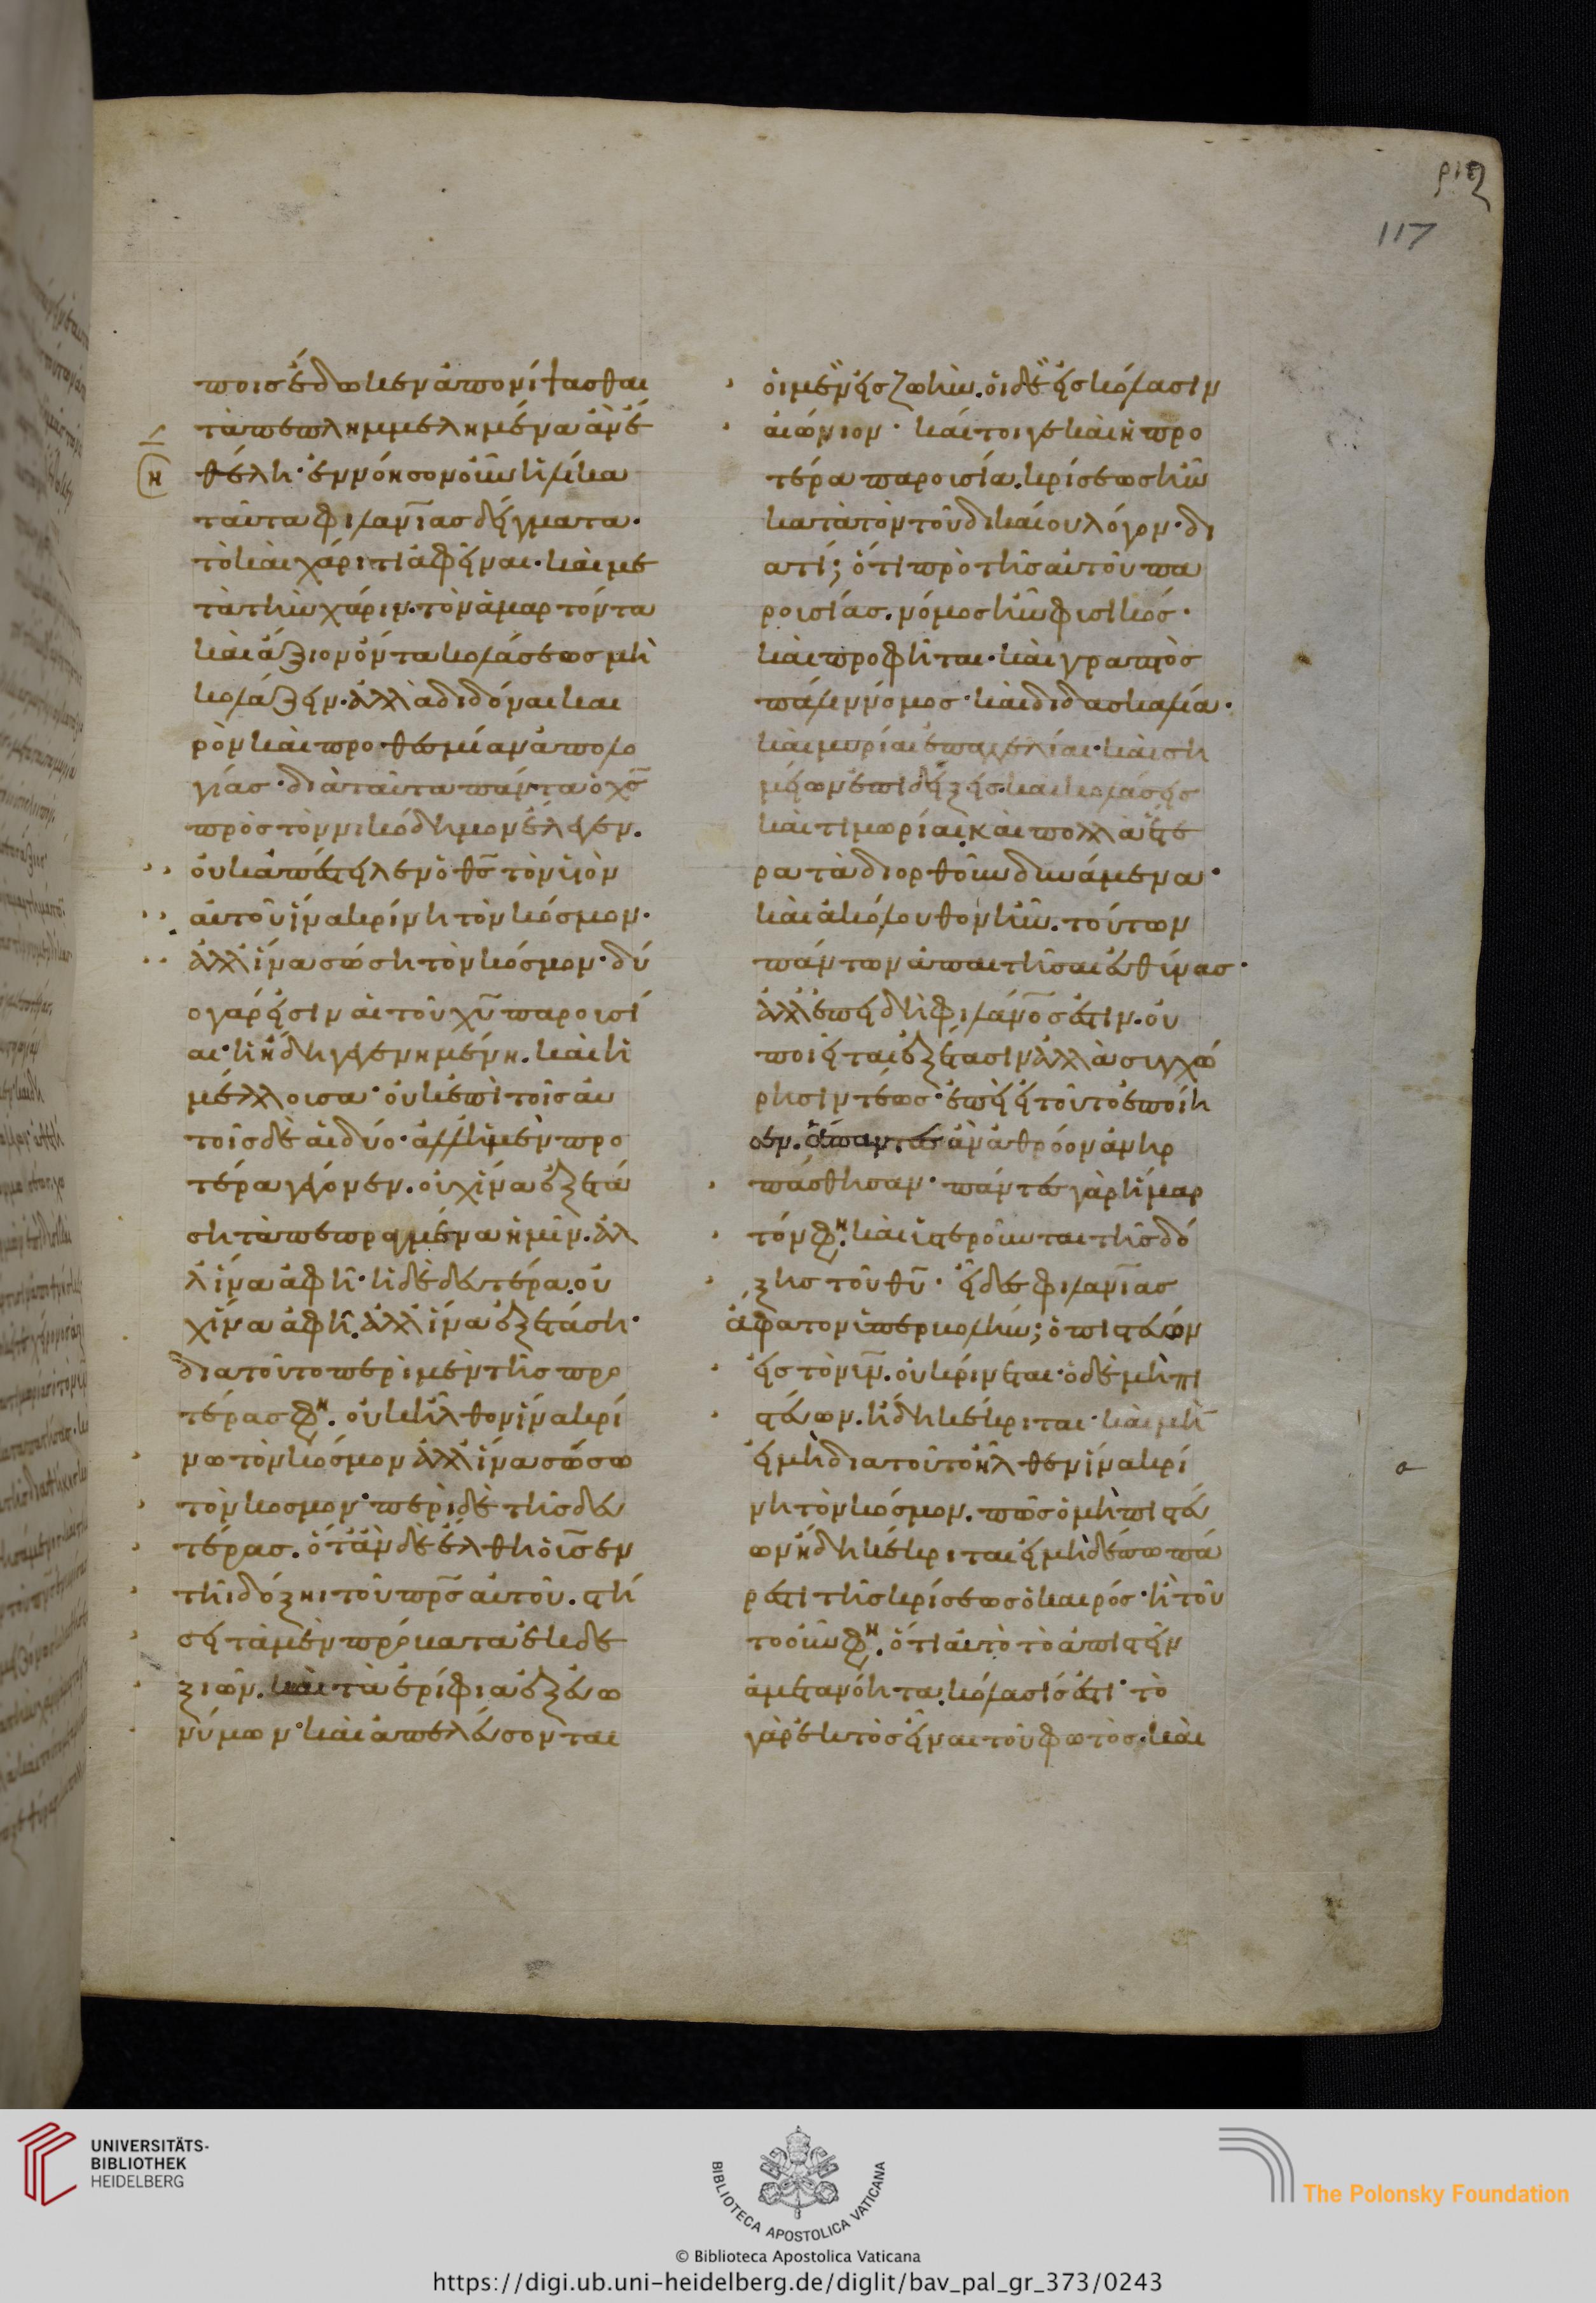 ριη
117
ποις ἔδωκεν ἀπονίψασθαι
τὰ πεπλημμελημένα ἂν ἐ
θέλη· ἐννόησον οὖν ἡλίκα
ταῦτα φιλανίας δείγματα·
τὸ καὶ χάριτι ἀφεῖναι· καὶ με
τὰ τὴν χάριν. τὸν ἁμαρτόντα
καὶ ἄξιον ὄντα κολάσεως μὴ
κολάζειν· ἀλλὰ διδόναι και
ρὸν καὶ προθεσμίαν ἀπολο
γίας· διὰ ταῦτα πάντα ὁ χς
πρὸς τὸν νικόδημον ἔλεγεν.
οὐκ ἀπέστειλεν ὁ θς τὸν υἱὸν
αὐτοῦ ἵνα κρίνη τὸν κόσμον·
ἀλλ' ἵνα σώση τὸν κόσμον· δύ
ο γάρ εἰσιν αἱ τοῦ χυ παρουσί
αι· ἡ ἤδη γεγενημένη. καὶ ἡ
μέλλουσα· οὐκ ἐπὶ τοῖς αὐ
τοῖς δὲ αἱ δύο· ἀλλ' ἡ μὲν προ
τέρα γέγονεν. οὐχ ἵνα ἐξετά
ση τὰ πεπραγμένα ἡμῖν. ἀλ
λ' ἵνα ἀφῆ· ἡ δὲ δευτέρα. οὐ
χ ἵνα ἀφῆ. ἀλλ' ἵνα ἐξετάση·
διατοῦτο περὶ μὲν τῆς προ
τέρας φη. οὐκ ἦλθον ἵνα κρί
νω τὸν κόσμον ἀλλ' ἵνα σώσω
τὸν κόσμον· περὶ δὲ τῆς δευ
τέρας. ὅταν δὲ ἔλθη ὁ υς ἐν
τῆι δόξηι τοῦ πρς αὐτοῦ. στή
σει τὰ μὲν πρόβατα ἐκ δε
ξιῶν. καὶ τὰ ἐρίφια ἐξ εὐω
νύμων· καὶ ἀπελεύσονται
οἱ μὲν εἰς ζωήν. οἱ δὲ εἰς κόλασιν
αἰώνιον· καίτοιγε καὶ ἡ προ
τέρα παρουσία. κρίσεως ἦν
κατὰ τὸν τοῦ δικαίου λόγον· δι
ατί; ὅτι πρὸ τῆς αὐτοῦ πα
ρουσίας. νόμος ἦν φυσικός·
καὶ προφῆται· καὶ γραπτὸς
πάλιν νόμος· καὶ διδασκαλία·
καὶ μυρίαι ἐπαγγελίαι· καὶ ση
μείων ἐπιδείξεις. καὶ κολάσεις
καὶ τιμωρίαι. καὶ πολλὰ ἕτε
ρα τὰ διορθοῦν δυνάμενα·
καὶ ἀκόλουθον ἦν. τούτων
πάντων ἀπαιτῆσαι εὐθύνας·
ἀλλ' ἐπειδὴ φιλάνος ἐστιν. οὐ
ποιεῖται ἐξέτασιν ἀλλὰ συγχώ
ρησιν τέως· ἐπεὶ εἰ τοῦτο ἐποίη
σεν. ἅπαντες ἂν ἀθρόον ἀνηρ
πάσθησαν· πάντες γὰρ ἥμαρ
τόν φη. καὶ ὑστεροῦνται τῆς δό
ξης τοῦ θυ· εἶδες φιλανίας
ἄφατον ὑπερβολήν; ὁ πιστεύων
εἰς τὸν υν. οὐ κρίνεται· ὁ δὲ μὴ πι
στεύων. ἤδη κέκριται· καὶ μὴν
εἰ μὴ διατοῦτο ἦλθεν ἵνα κρί
νη τὸν κόσμον. πῶς ὁ μὴ πιστεύ
ων ἤδη κέκριται εἰ μηδέπω πά
ρεστι τῆς κρίσεως ὁ καιρός· ἢ τοῦ
το οὖν φη. ὅτι αὐτὸ τὸ ἀπιστεῖν
ἀμετανόητα. κόλασίς ἐστι· τὸ
γὰρ ἐκτὸς εἶναι τοῦ φωτὸς. καὶ
UNIVERSITÄTS-
BIBLIOTHEK
HEIDELBERG
BIBLIOTECA APOSTOLICA VATICANA
The Polonsky Foundation
© Biblioteca Apostolica Vaticana
https://digi.ub.uni-heidelberg.de/diglit/bav_pal_gr_373/0243